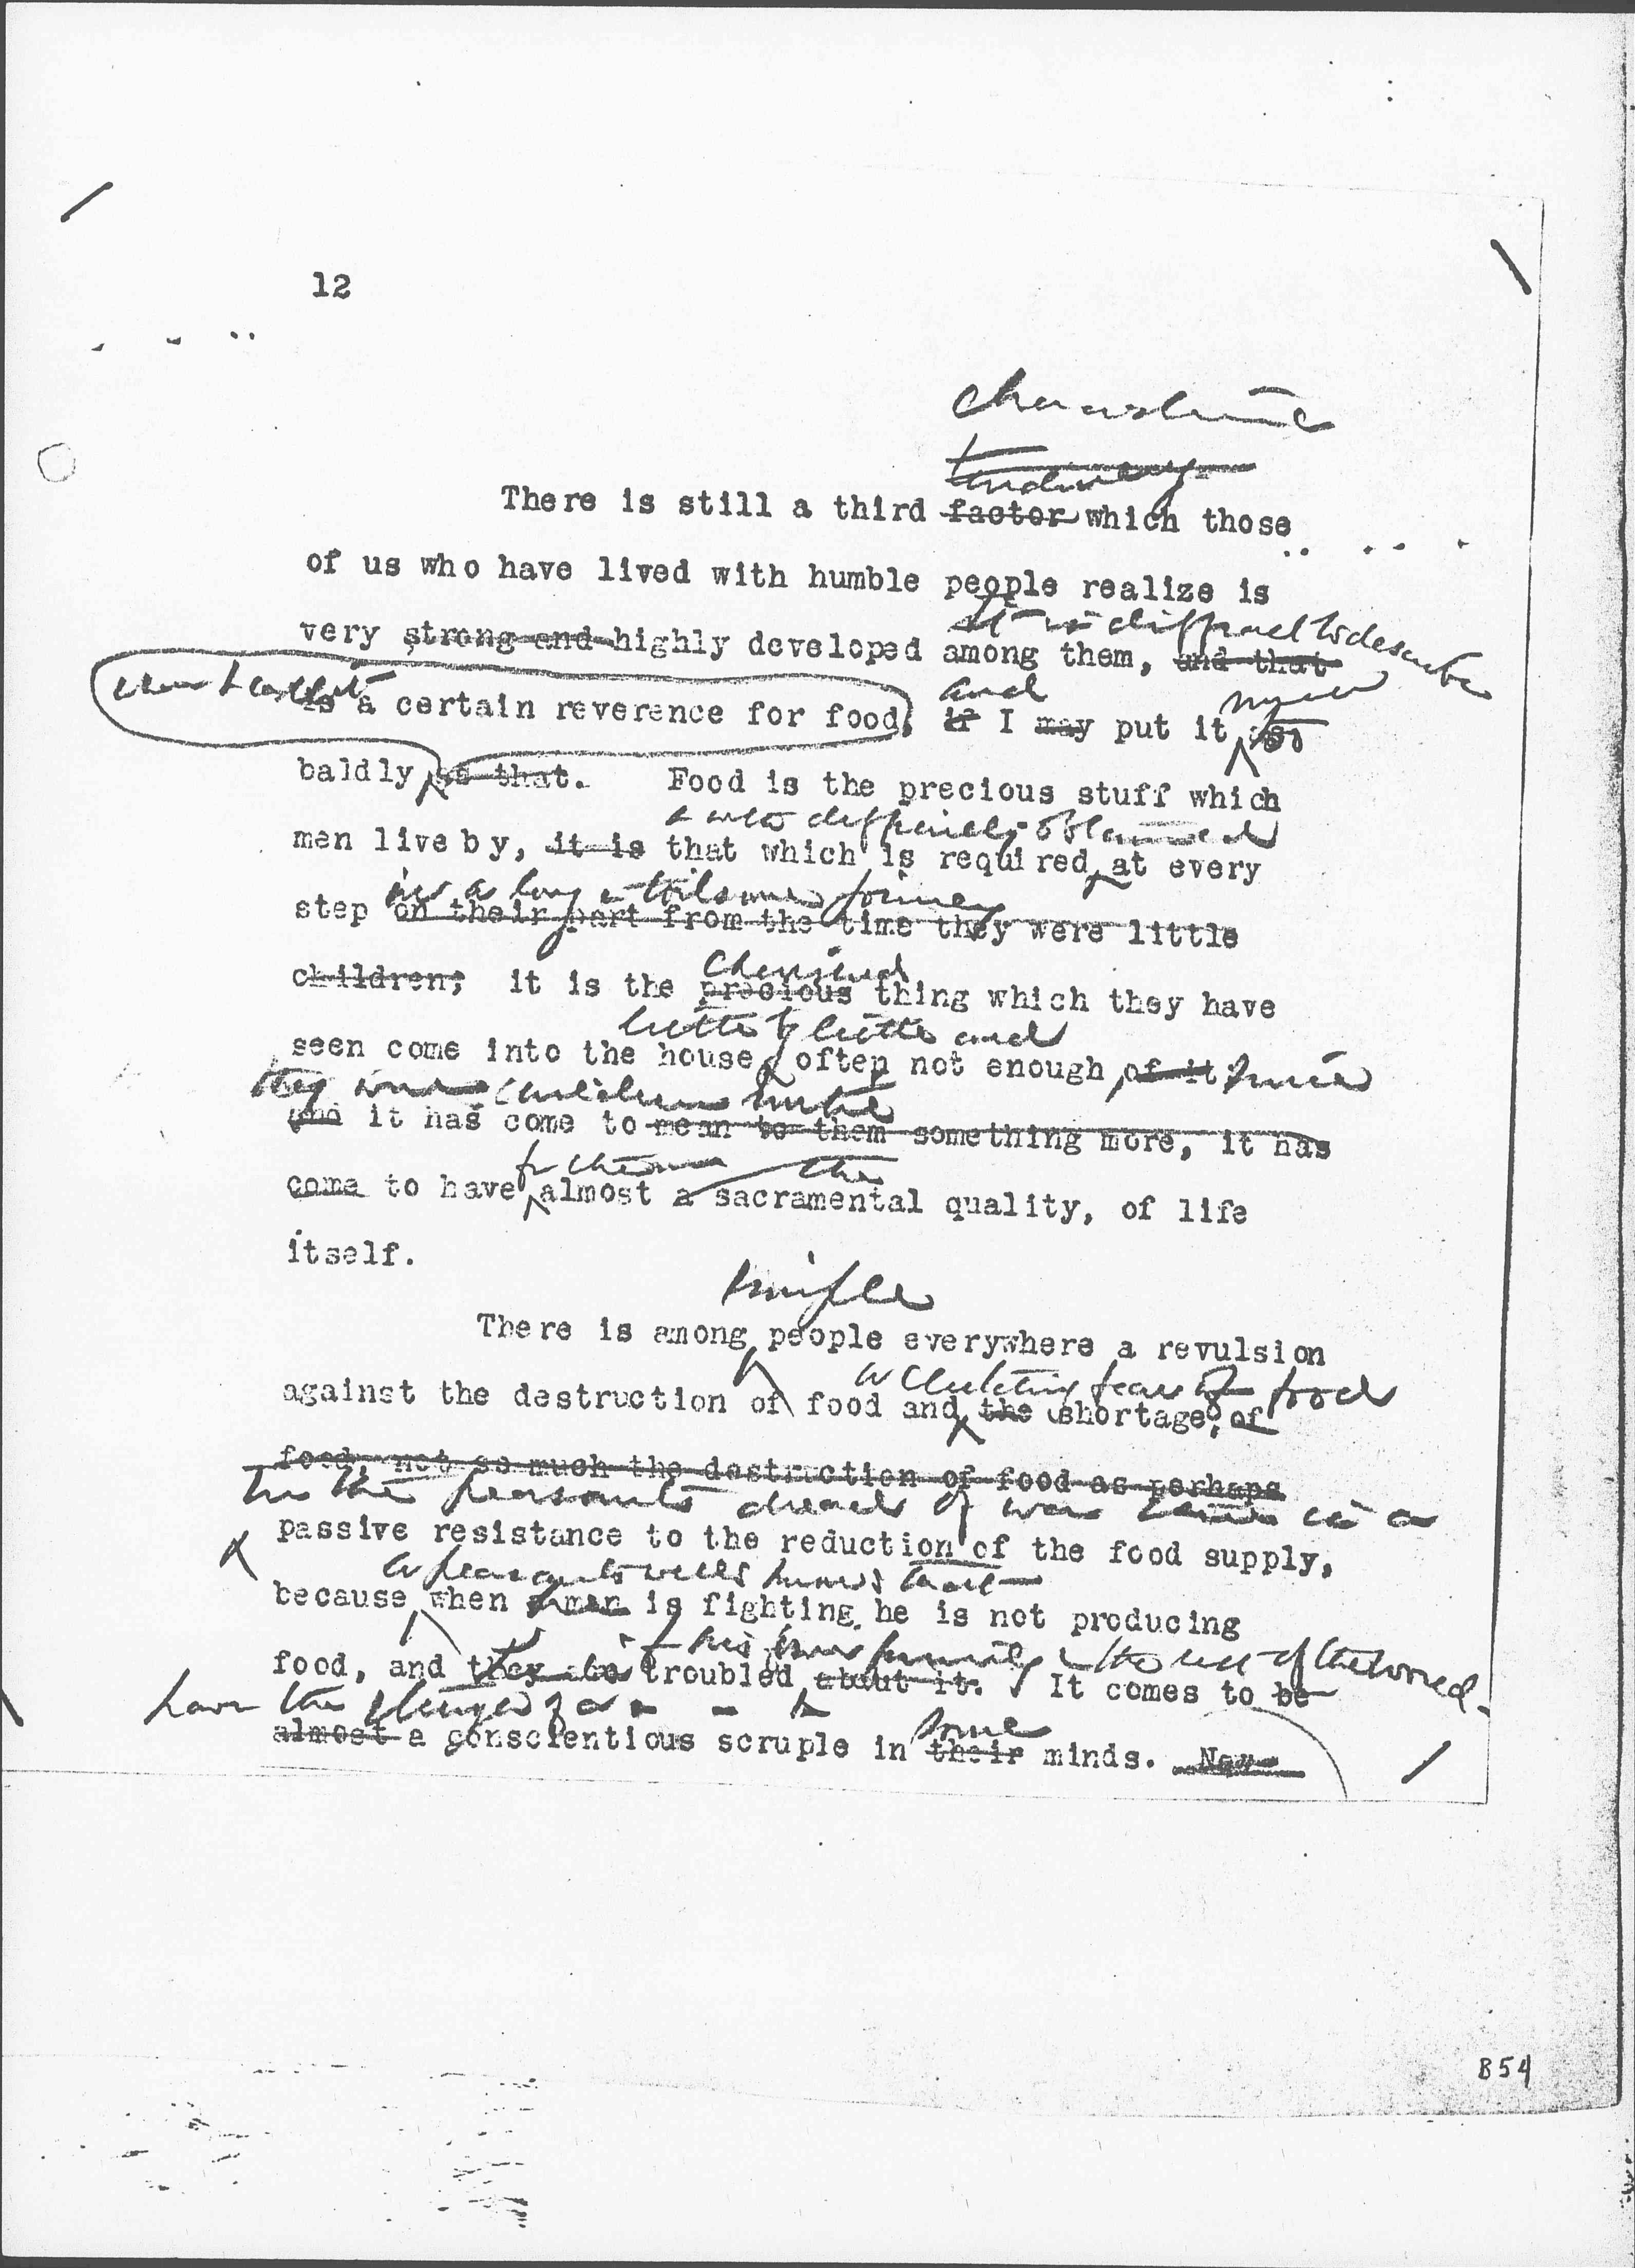 12
tendency
There is still a third factor which those
of us who have lived with humble people realize is
it is difficult to describe
very strong and highly developed among them, and that
and
is a certain reverence for food, if I may put it so
baldly as that. Food is the precious stuff which
difficulty obtained
men live by, it is that which is required at every
a long & toilsome journey
step on their part from the time they were little
cherished
children; it is the precious thing which they have
little by little and
seen come into the house, often not enough of it, since
they were children until
and it has come to mean to them something more, it has
for them the
come to have almost a sacramental quality, of life
itself.
simple
There is among people everywhere a revulsion
a clutching fear of food
against the destruction of food and the shortage, of
food, not so much the destruction of food as perhaps
In the peasants dread of war is a
passive resistance to the reduction of the food supply,
a peasant well knows that
because when a man is fighting he is not producing
if his own family & the rest of the world.
food, and they are troubled about it. It comes to be
have the of a
almost a conscientious scruple in their minds. Now
some
B54